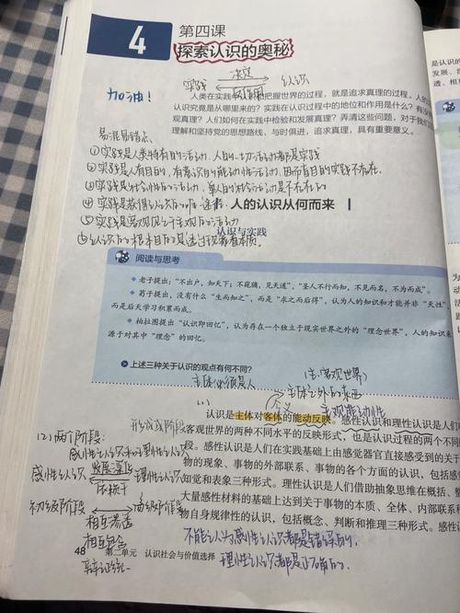 4
第四课
探索认识的奥秘
实践 决定 认识
反作用
加油!
人类在实践中认识和把握世界的过程,就是追求真理的过程。人的
认识究竟是从哪里来的?实践在认识过程中的地位和作用是什么?有
观真理?人们如何在实践中检验和发展真理?弄清这些问题,对于我们
理解和坚持党的思想路线、与时俱进,追求真理,具有重要意义。
易混易错点:
①实践是人类特有的活动,人的一切活动都是实践
②实践是人有目的、有意识的能动性活动,因而盲目的实践不存在.
③实践是社会性的活动,单人的社会活动是不存在的
④实践是获得认识的唯一途径.
人的认识从何而来
⑤实践是客观见之于主观的活动
认识与实践
⑥认识的根本目的是透过现象看本质.
阅读与思考
老子提出:“不出户,知天下;不窥牖,见天道”,“圣人不行而知,不见而名,不为而成”。
荀子提出,没有什么“生而知之”,而是“求之而后得”,认为人的知识和才能并非“天性”
而是后天学习积累而成。
柏拉图提出“认识即回忆”,认为存在一个独立于现实世界之外的“理念世界”,人的知识来
源于对其中“理念”的回忆。
上述三种关于认识的观点有何不同?
主体必须是人
(主、客观世界)
主体之外的东西
(1)
含义
主观能动性
认识是主体对客体的能动反映。感性认识和理性认识是人们
客观世界的两种不同水平的反映形式,也是认识过程的两个不同
段。感性认识是人们在实践基础上由感觉器官直接感受到的关于
物的现象、事物的外部联系、事物的各个方面的认识,包括感
知觉和表象三种形式。理性认识是人们借助抽象思维在概括、整
大量感性材料的基础上达到关于事物的本质、全体、内部联系和
物自身规律性的认识,包括概念、判断和推理三种形式。感性认
形式或阶段
(2)两个阶段:
感性认识和理性认识
感性认识 发展深化 理性认识
依赖于
初级阶段 高级阶段
相互渗透
相互包含
辩证统一
不能认为感性认识都是错误的,
理性认识都是正确的.
48 第二单元 认识社会与价值选择